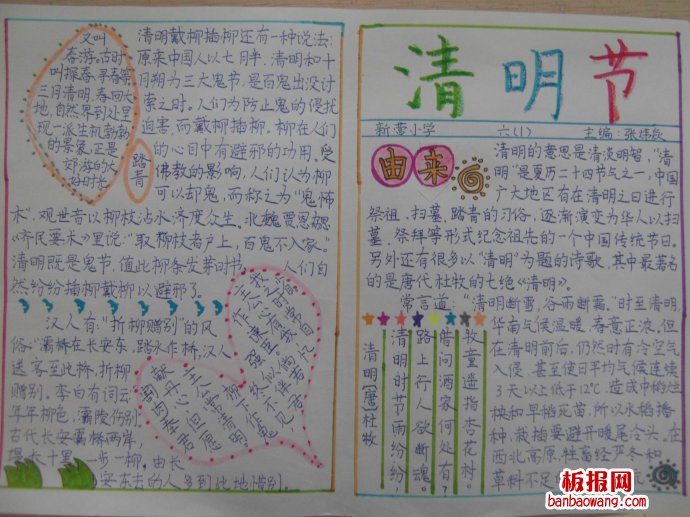 清明节
新营小学 六(1) 主编:张
由来
清明的意思是清淡明智,“清
明”是夏历二十四节气之一,中国
广大地区有在清明之日进行
祭祖、扫墓、踏青的习俗,逐渐演变为华人以扫
墓、祭拜等形式纪念祖先的一个中国传统节日。
另外还有很多以“清明”为题的诗歌,其中最著名
的是唐代杜牧的七绝《清明》。
常言道:“清明断雪,谷雨断霜。”时至清明,
华南气候温暖,春意正浓。但
在清明前后,仍然时有冷空气
入侵,甚至使日平均气候连续
3天以上低于12℃,造成中稻烂
秧和早稻死苗,所以水稻播
种,栽插要避开暖尾冷头。在
西北高原,牲畜经严冬和
草料不足
清明 [唐] 杜牧
清明时节雨纷纷,
路上行人欲断魂。
借问酒家何处有?
牧童遥指杏花村。
踏青
又叫
春游。古时
叫探春、寻春等。
三月清明,春回大
地,自然界到处呈
现一派生机勃勃
的景象,正是
郊游的大
好时光。
清明戴柳插柳还有一种说法:
原来中国人以七月半、清明和十
月朔为三大鬼节,是百鬼出没讨
索之时。人们为防止鬼的侵扰
迫害,而戴柳插柳。柳在人们
的心目中有避邪的功用。受
佛教的影响,人们认为柳
可以却鬼,而称之为“鬼怖
木”,观世音以柳枝沾水济度众生。北魏贾思勰
《齐民要术》里说:“取柳枝著户上,百鬼不入家。”
清明既是鬼节,值此柳条发芽时节, 人们自
然纷纷插柳戴柳以避邪了。
汉人有“折柳赠别”的风
俗:“灞桥在长安东,跨水作桥,汉人
送客至此桥,折柳
赠别。”李白有词云:
年年柳色,灞陵伤别。
古代长安灞桥两岸,
堤长十里,一步一柳,由长
安东去的人多到此地惜别。
板报网
banbaowang.com